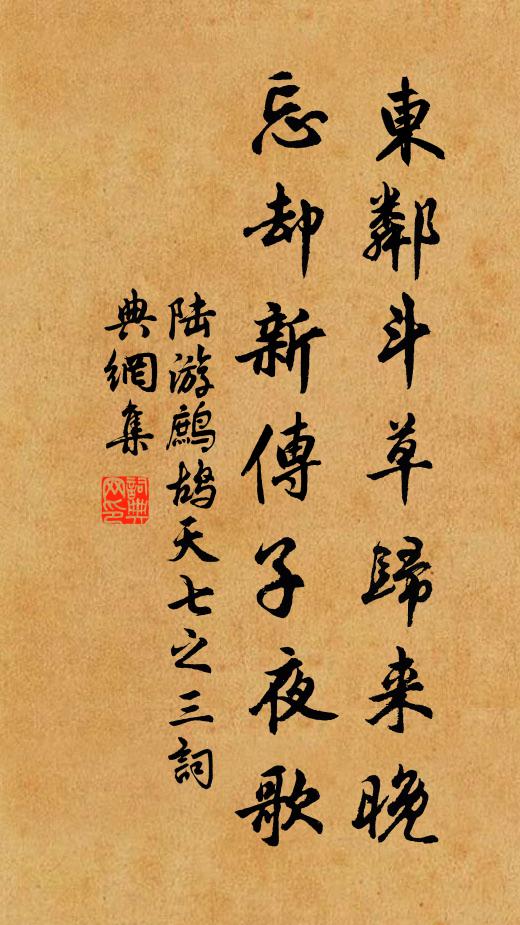 東鄰斗草歸来晚
忘却新傳子夜歌
陆游鷓鸪天七之三詞
典網集
詞典网印